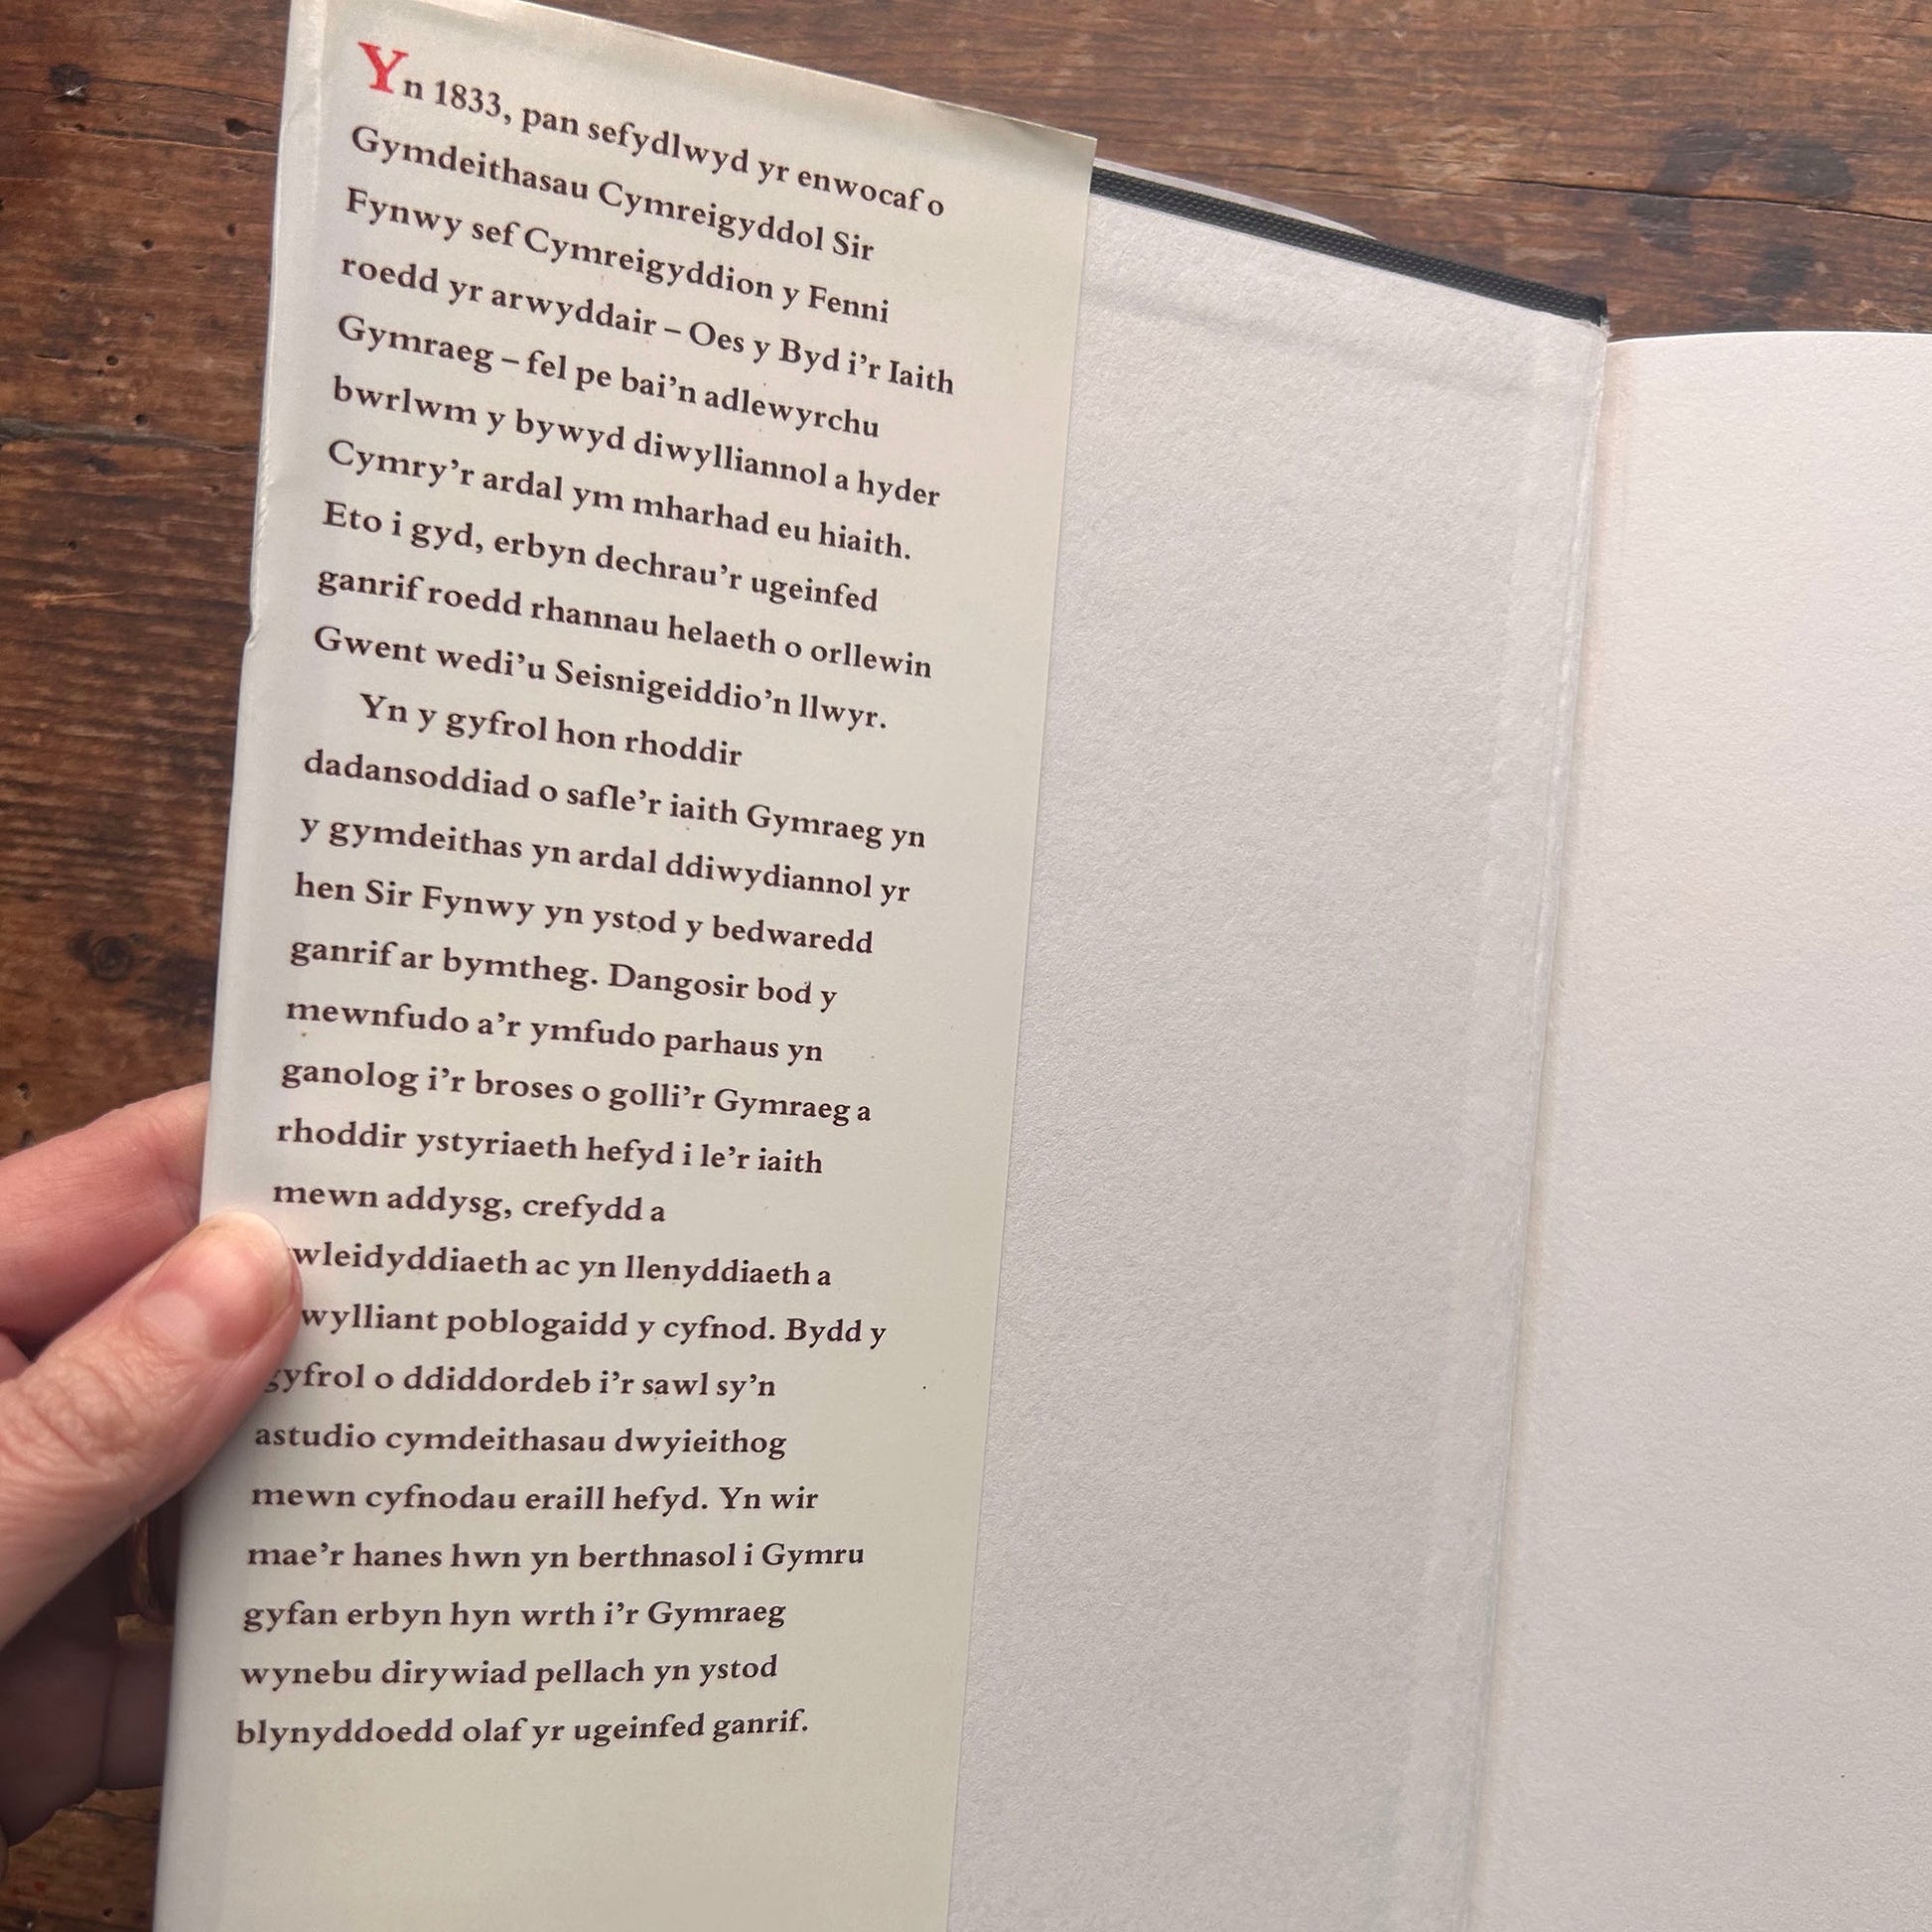 Yn 1833, pan sefydlwyd yr enwocaf o
Gymdeithasau Cymreigyddol Sir
Fynwy sef Cymreigyddion y Fenni
roedd yr arwyddair – Oes y Byd i’r Iaith
Gymraeg – fel pe bai’n adlewyrchu
bwrlwm y bywyd diwylliannol a hyder
Cymry’r ardal ym mharhad eu hiaith.
Eto i gyd, erbyn dechrau’r ugeinfed
ganrif roedd rhannau helaeth o orllewin
Gwent wedi’u Seisnigeiddio’n llwyr.
Yn y gyfrol hon rhoddir
dadansoddiad o safle’r iaith Gymraeg yn
y gymdeithas yn ardal ddiwydiannol yr
hen Sir Fynwy yn ystod y bedwaredd
ganrif ar bymtheg. Dangosir bod y
mewnfudo a’r ymfudo parhaus yn
ganolog i’r broses o golli’r Gymraeg a
rhoddir ystyriaeth hefyd i le’r iaith
mewn addysg, crefydd a
ac yn llenyddiaeth a
poblogaidd y cyfnod. Bydd y
gyfrol o ddiddordeb i’r sawl sy’n
astudio cymdeithasau dwyieithog
mewn cyfnodau eraill hefyd. Yn wir
mae’r hanes hwn yn berthnasol i Gymru
gyfan erbyn hyn wrth i’r Gymraeg
wynebu dirywiad pellach yn ystod
blynyddoedd olaf yr ugeinfed ganrif.